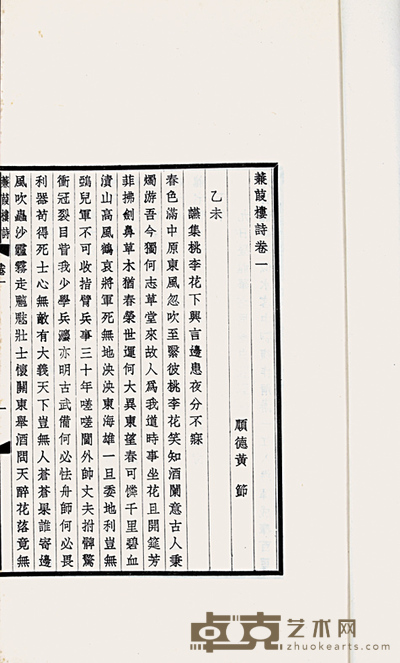 蒹葭樓詩卷一
順德黃節
乙未
讌集桃李花下興言邊患夜分不寐
春色滿中原東風忽吹至繄彼桃李花笑知酒闌意古人秉
燭游吾今獨何志草堂來故人為我道時事坐花且開筵芳
菲拂劍鼻草木猶春榮世運何大異東望春可憐千里碧血
漬山高風鶴哀將軍死無地泱泱東海雄一旦委地利豈無
鴞兒軍不可收指臂兵事三十年嗟嗟閫外帥丈夫拊髀驚
衝冠裂目眥我少學兵灋亦明古武備何必怯舟師何必畏
利器苟得死士心無敵有大義天下豈無人蒼蒼果誰寄邊
風吹蟲沙霾霧走魑魅壯士懷關東舉酒問天醉花落竟無
蒹葭樓詩
卷一
一
卓克艺术网
zhuokearts.com